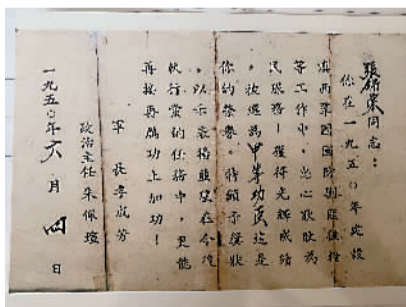 張 同志：
你在一九五〇年建設
滇西鞏固國防剿匪征糧
等工作中，忠心耿耿為
民服務！獲得光輝成績
，被選為甲等功臣這是
你的榮譽。特頒予獎狀
，以示表揚 望在今後
執行黨的任務中，更能
再接再勵功上加功！
軍 長李成芳
政治主任朱佩瑄
一九五〇年六月四日